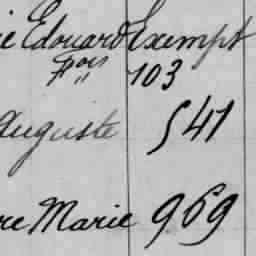 ie Edouard Exempt
Fois 103
Auguste 541
re Marie 969